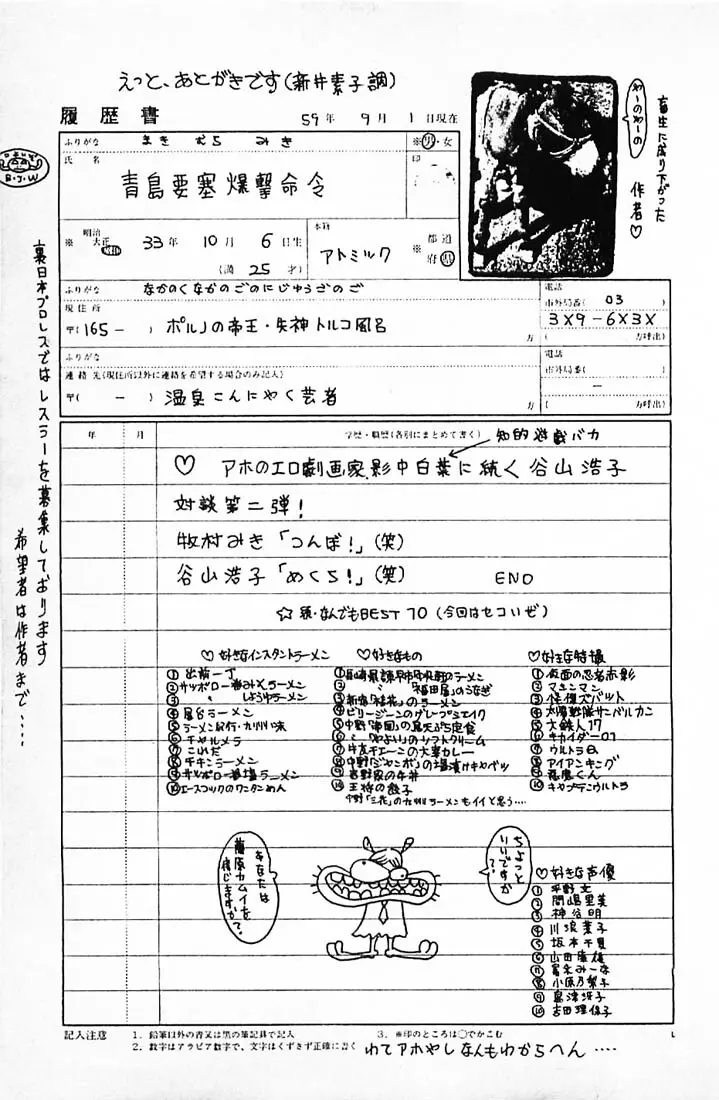 えっと、あとがきです(新井素子調)
履歴書
59年 9月 1日現在
ふりがな まきむらみき
※男・女
氏名
印
青島要塞爆撃命令
※ 明治 大正 昭和 33年 10月 6日生
(満 25 才)
本籍
アトミック
※ 都道府県
わーのわーの
畜生に成り下がった
作者♡
ふりがな なかのくなかのごのにじゅうごのご
現住所
〒(165- ) ポルノの帝王・失神トルコ風呂
方
電話
市外局番( 03
3X9-6X3X
(方呼出)
ふりがな
連絡先(現住所以外に連絡を希望する場合のみ記入)
〒( - ) 温泉こんにゃく芸者
方
電話
市外局番(
(方呼出)
B・J・W
裏日本プロレスではレスラーを募集しております
希望者は作者まで‥‥
年 月 学歴・職歴(各別にまとめて書く)
知的遊戯バカ
♡ アホのエロ劇画家、影中白葉に続く谷山浩子
対談第二弾!
牧村みき「つんぼ!」(笑)
谷山浩子「めくら!」(笑) END
☆続・なんでもBEST 10(今回はセコいぜ)
♡好きなインスタントラーメン
① 出前一丁
② サッポロ一番みそラーメン
③ 〃 しょうゆラーメン
④ 屋台ラーメン
⑤ ラーメン紀行・九州味
⑥ チャルメラ
⑦ これだ
⑧ チキンラーメン
⑨ サッポロ一番塩ラーメン
⑩ エースコックのワンタンめん
♡好きなもの
② 〃 「福田屋」のうなぎ
③ 新宿「桂花」のラーメン
④ ビリージーンのグレープシェイク
⑤ 中野「帝国」の鳥天ぷら定食
⑥ 〃 「やよい」のソフトクリーム
⑦ 牛友チェーンの大妻カレー
⑧ 中野「ジャンボ」の塩漬けキャベツ
⑨ 吉野家の牛丼
⑩ 王将の餃子
中野「三花」の九州ラーメンもイイと思う‥‥
♡好きな特撮
① 仮面の忍者赤影
② マシンマン
③ 怪傑ズバット
④ 太陽戦隊サンバルカン
⑤ 大鉄人17
⑥ キカイダー01
⑦ ウルトラQ
⑧ アイアンキング
⑨ 悪魔くん
⑩ キャプテンウルトラ
ちょっといいですか?
あなたは藤原カムイを信じますか?
♡好きな声優
① 平野文
② 間嶋里美
③ 神谷明
④ 川浪葉子
⑤ 坂本千夏
⑥ 山田康雄
⑦ 富永みーな
⑧ 小原乃梨子
⑨ 島津冴子
⑩ 吉田理保子
記入注意 1. 鉛筆以外の青又は黒の筆記具で記入 3. ※印のところは○でかこむ
2. 数字はアラビア数字で、文字はくずさず正確に書く
わてアホやしなんもわからへん‥‥